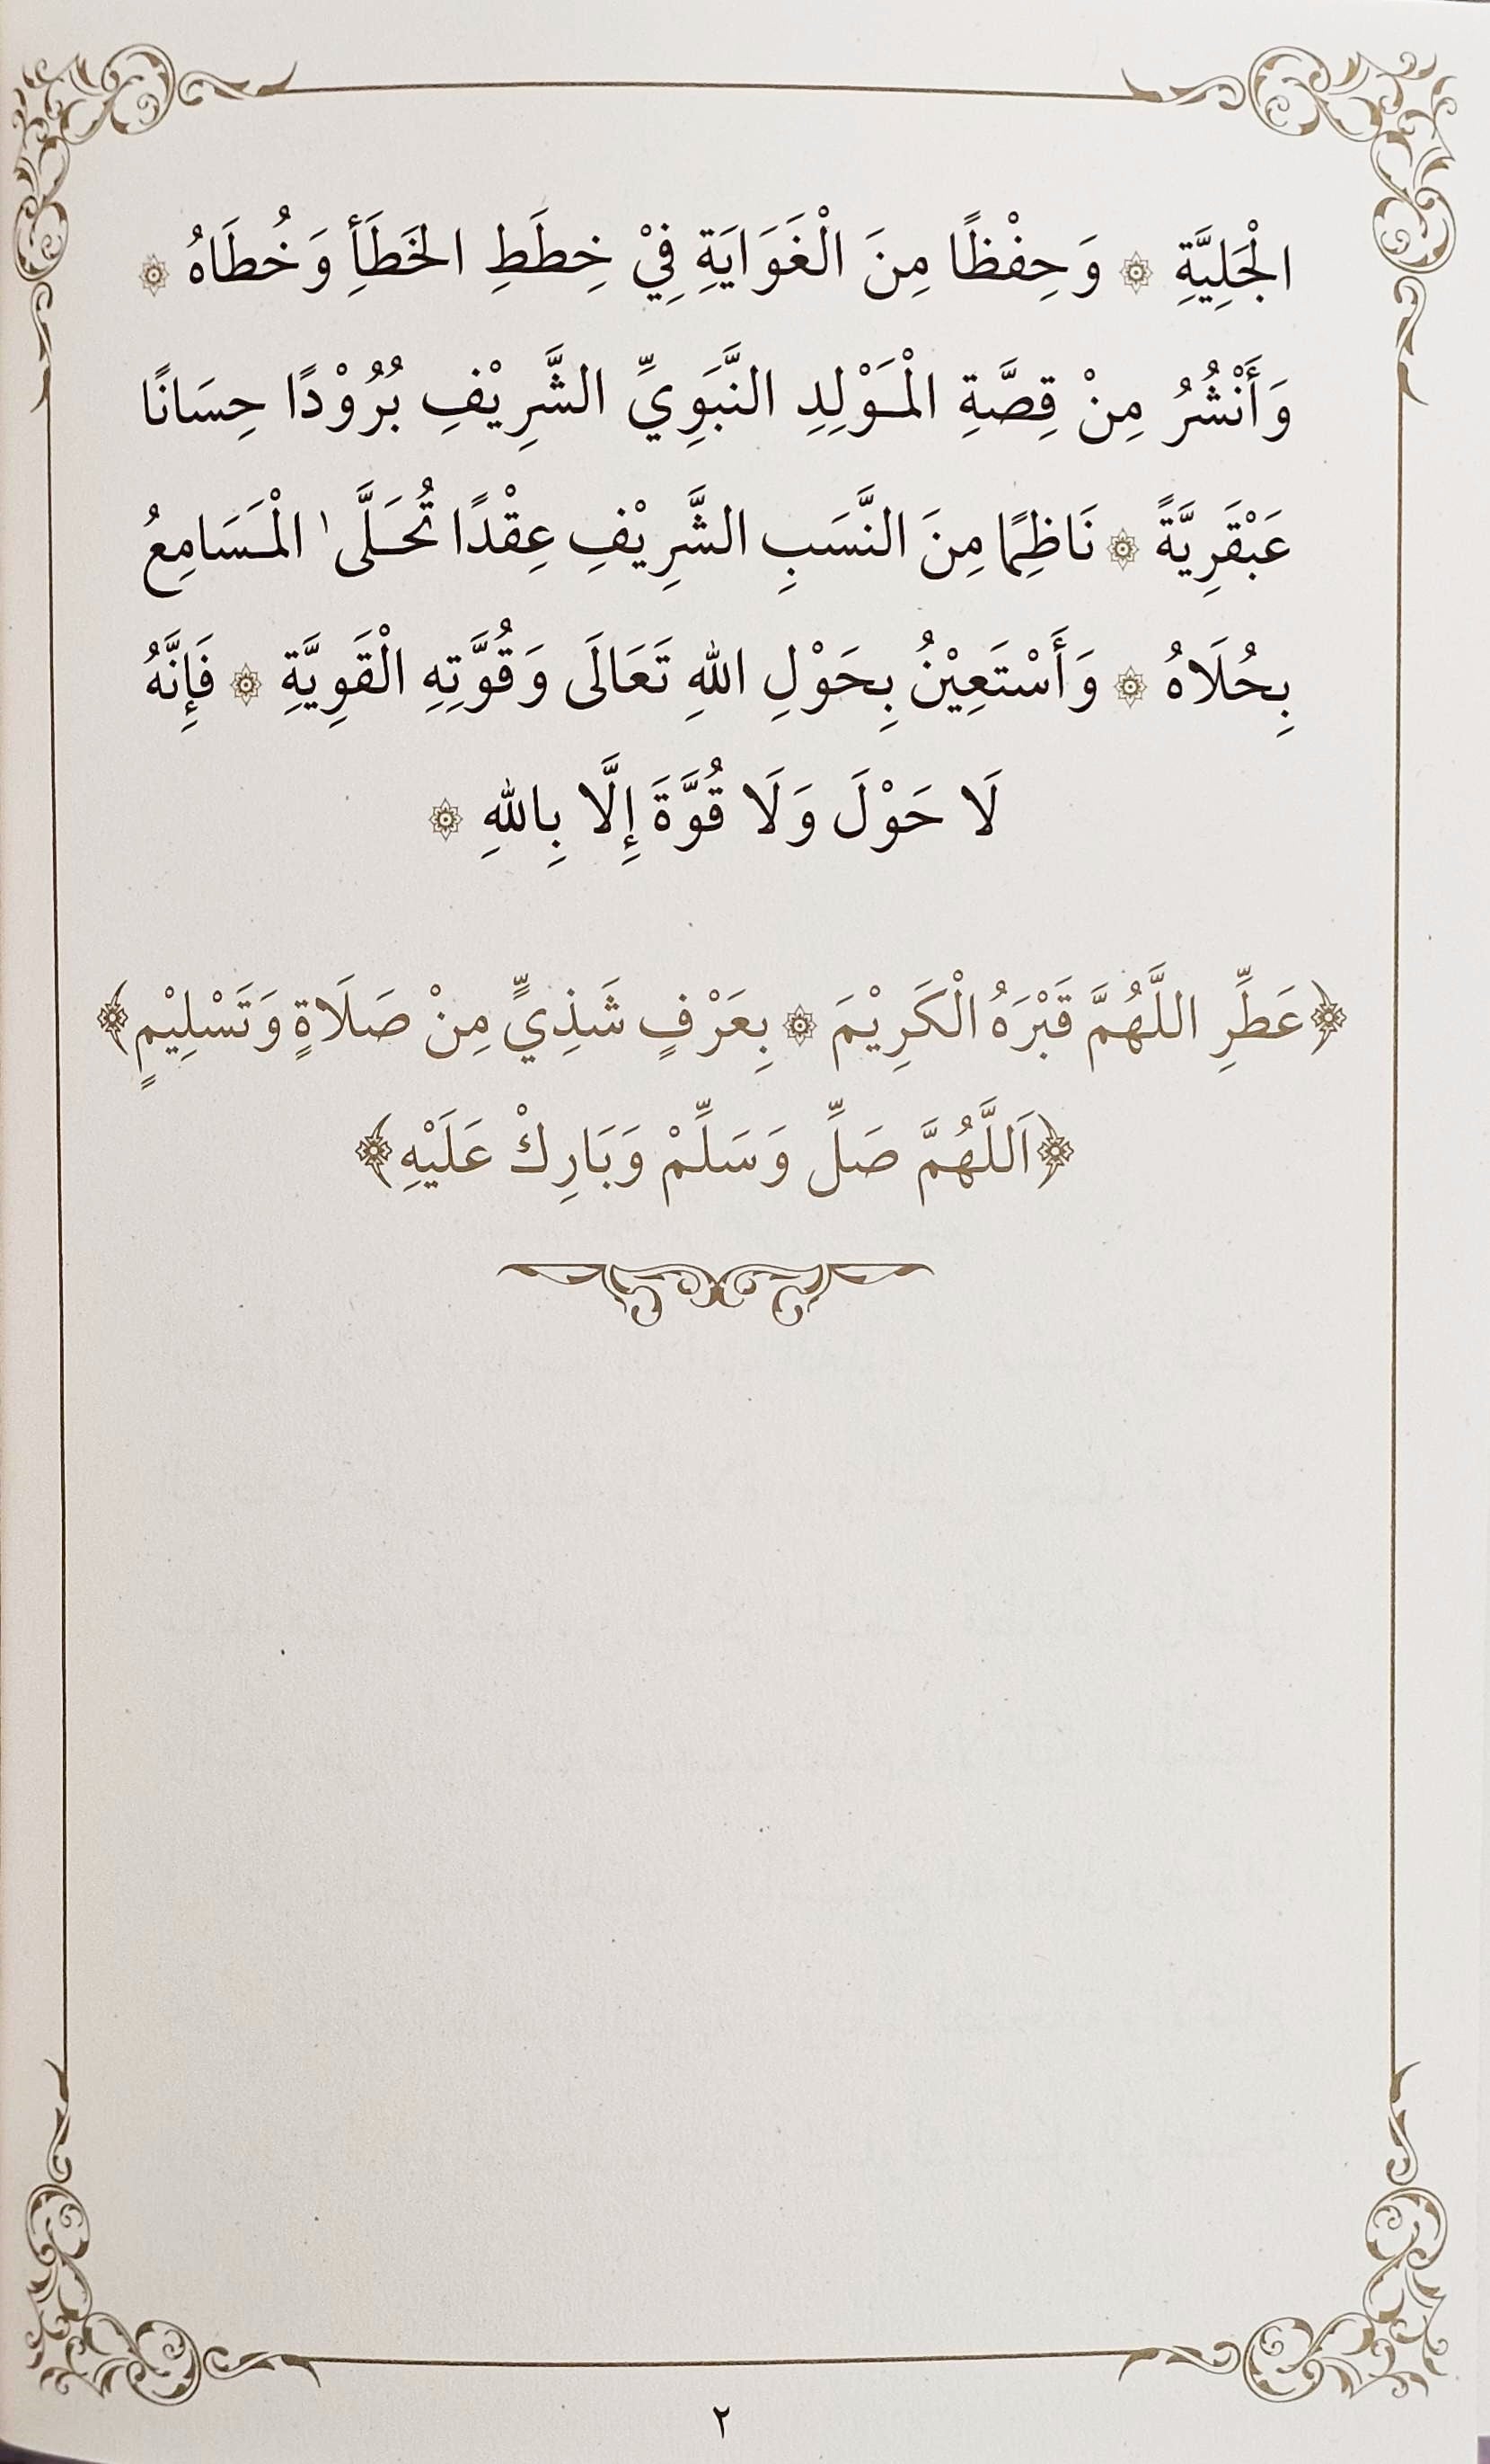 الْجَلِيَّةِ ۞ وَحِفْظًا مِنَ الْغَوَايَةِ فِيْ خِطَطِ الخَطَأِ وَخُطَاهُ ۞
وَأَنْشُرُ مِنْ قِصَّةِ الْمَوْلِدِ النَّبَوِيِّ الشَّرِيْفِ بُرُوْدًا حِسَانًا
عَبْقَرِيَّةً ۞ نَاظِمًا مِنَ النَّسَبِ الشَّرِيْفِ عِقْدًا تُحَلَّىٰ الْمَسَامِعُ
بِحُلَاهُ ۞ وَأَسْتَعِيْنُ بِحَوْلِ اللهِ تَعَالَى وَقُوَّتِهِ الْقَوِيَّةِ ۞ فَإِنَّهُ
لَا حَوْلَ وَلَا قُوَّةَ إِلَّا بِاللهِ ۞
﴿عَطِّرِ اللَّهُمَّ قَبْرَهُ الْكَرِيْمَ ۞ بِعَرْفٍ شَذِيٍّ مِنْ صَلَاةٍ وَتَسْلِيْمٍ﴾
﴿اَللَّهُمَّ صَلِّ وَسَلِّمْ وَبَارِكْ عَلَيْهِ﴾
٢